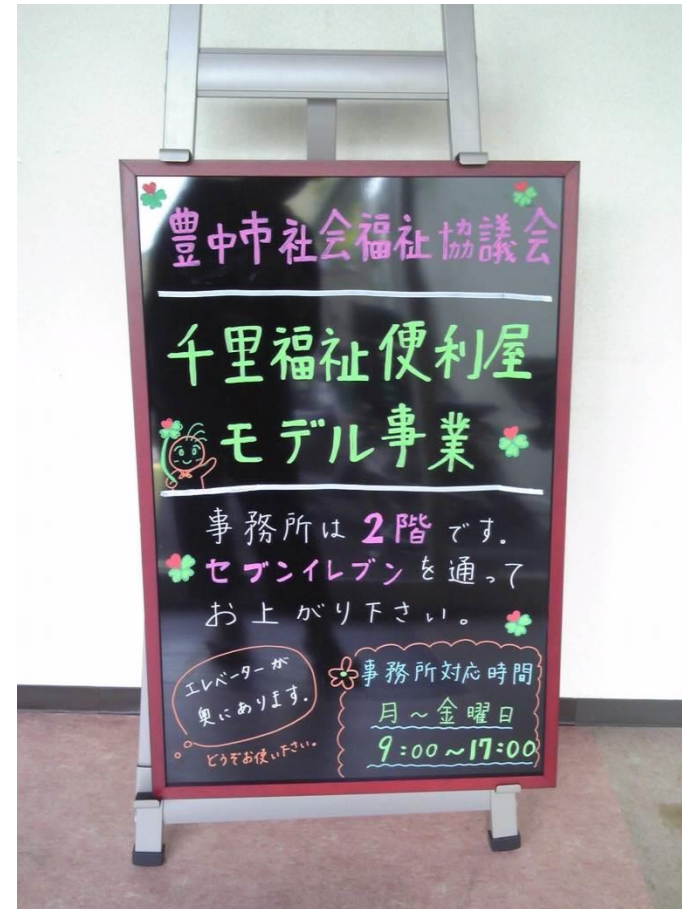 豊中市社会福祉協議会
千里福祉便利屋
モデル事業
事務所は2階です。
セブンイレブンを通って
お上がり下さい。
エレベーターが
奥にあります。
どうぞお使い下さい。
事務所対応時間
月～金曜日
9:00～17:00